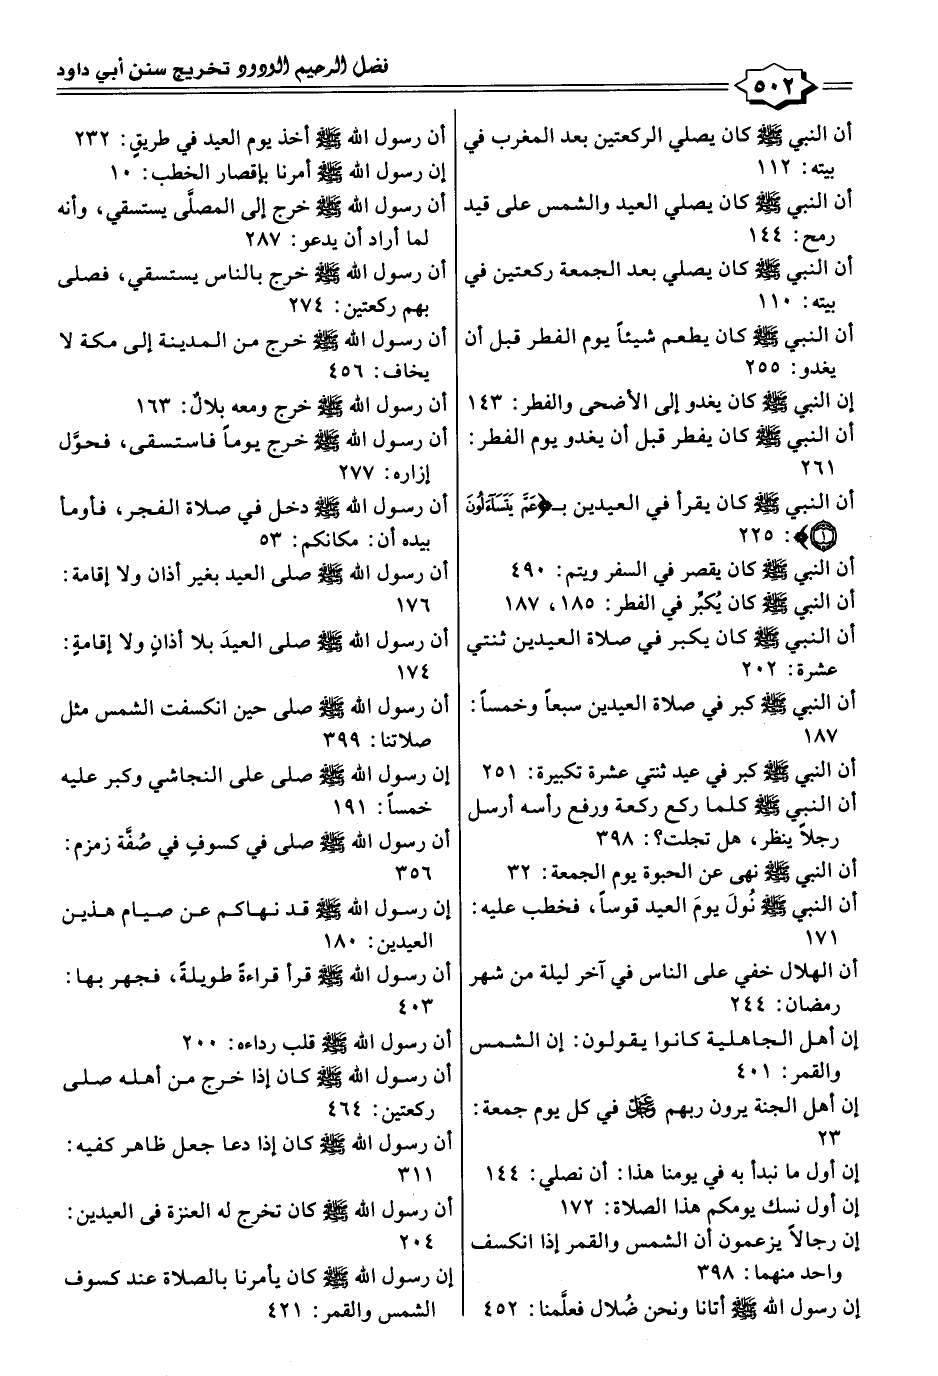 ٥٠٢
فضل الرحيم الودود تخريج سنن أبي داود
أن النبي ﷺ كان يصلي الركعتين بعد المغرب في
بيته: ١١٢
أن النبي ﷺ كان يصلي العيد والشمس على قيد
رمح: ١٤٤
أن النبي ﷺ كان يصلي بعد الجمعة ركعتين في
بيته: ١١٠
أن النبي ﷺ كان يطعم شيئاً يوم الفطر قبل أن
يغدو: ٢٥٥
إن النبي ﷺ كان يغدو إلى الأضحى والفطر: ١٤٣
أن النبي ﷺ كان يفطر قبل أن يغدو يوم الفطر:
٢٦١
أن النبي ﷺ كان يقرأ في العيدين بـ﴿عَمَّ يَتَسَآءَلُونَ
۝١﴾: ٢٢٥
أن النبي ﷺ كان يقصر في السفر ويتم: ٤٩٠
أن النبي ﷺ كان يُكبِّر في الفطر: ١٨٥، ١٨٧
أن النبي ﷺ كان يكبر في صلاة العيدين ثنتي
عشرة: ٢٠٢
أن النبي ﷺ كبر في صلاة العيدين سبعاً وخمساً:
١٨٧
أن النبي ﷺ كبر في عيد ثنتي عشرة تكبيرة: ٢٥١
أن النبي ﷺ كلما ركع ركعة ورفع رأسه أرسل
رجلاً ينظر، هل تجلت؟: ٣٩٨
أن النبي ﷺ نهى عن الحبوة يوم الجمعة: ٣٢
أن النبي ﷺ نُولَ يومَ العيد قوساً، فخطب عليه:
١٧١
أن الهلال خفي على الناس في آخر ليلة من شهر
رمضان: ٢٤٤
إن أهل الجاهلية كانوا يقولون: إن الشمس
والقمر: ٤٠١
إن أهل الجنة يرون ربهم عز وجل في كل يوم جمعة:
٢٣
إن أول ما نبدأ به في يومنا هذا: أن نصلي: ١٤٤
إن أول نسك يومكم هذا الصلاة: ١٧٢
إن رجالاً يزعمون أن الشمس والقمر إذا انكسف
واحد منهما: ٣٩٨
إن رسول الله ﷺ أتانا ونحن ضُلال فعلَّمنا: ٤٥٢
أن رسول الله ﷺ أخذ يوم العيد في طريقٍ: ٢٣٢
إن رسول الله ﷺ أمرنا بإقصار الخطب: ١٠
أن رسول الله ﷺ خرج إلى المصلَّى يستسقي، وأنه
لما أراد أن يدعو: ٢٨٧
أن رسول الله ﷺ خرج بالناس يستسقي، فصلى
بهم ركعتين: ٢٧٤
أن رسول الله ﷺ خرج من المدينة إلى مكة لا
يخاف: ٤٥٦
أن رسول الله ﷺ خرج ومعه بلالٌ: ١٦٣
أن رسول الله ﷺ خرج يوماً فاستسقى، فحوَّل
إزاره: ٢٧٧
أن رسول الله ﷺ دخل في صلاة الفجر، فأومأ
بيده أن: مكانكم: ٥٣
أن رسول الله ﷺ صلى العيد بغير أذان ولا إقامة:
١٧٦
أن رسول الله ﷺ صلى العيدَ بلا أذانٍ ولا إقامةٍ:
١٧٤
أن رسول الله ﷺ صلى حين انكسفت الشمس مثل
صلاتنا: ٣٩٩
إن رسول الله ﷺ صلى على النجاشي وكبر عليه
خمساً: ١٩١
أن رسول الله ﷺ صلى في كسوفٍ في صُفَّة زمزم:
٣٥٦
إن رسول الله ﷺ قد نهاكم عن صيام هذين
العيدين: ١٨٠
أن رسول الله ﷺ قرأ قراءةً طويلةً، فجهر بها:
٤٠٣
أن رسول الله ﷺ قلب رداءه: ٢٠٠
أن رسول الله ﷺ كان إذا خرج من أهله صلى
ركعتين: ٤٦٤
أن رسول الله ﷺ كان إذا دعا جعل ظاهر كفيه:
٣١١
أن رسول الله ﷺ كان تخرج له العنزة في العيدين:
٢٠٤
إن رسول الله ﷺ كان يأمرنا بالصلاة عند كسوف
الشمس والقمر: ٤٢١